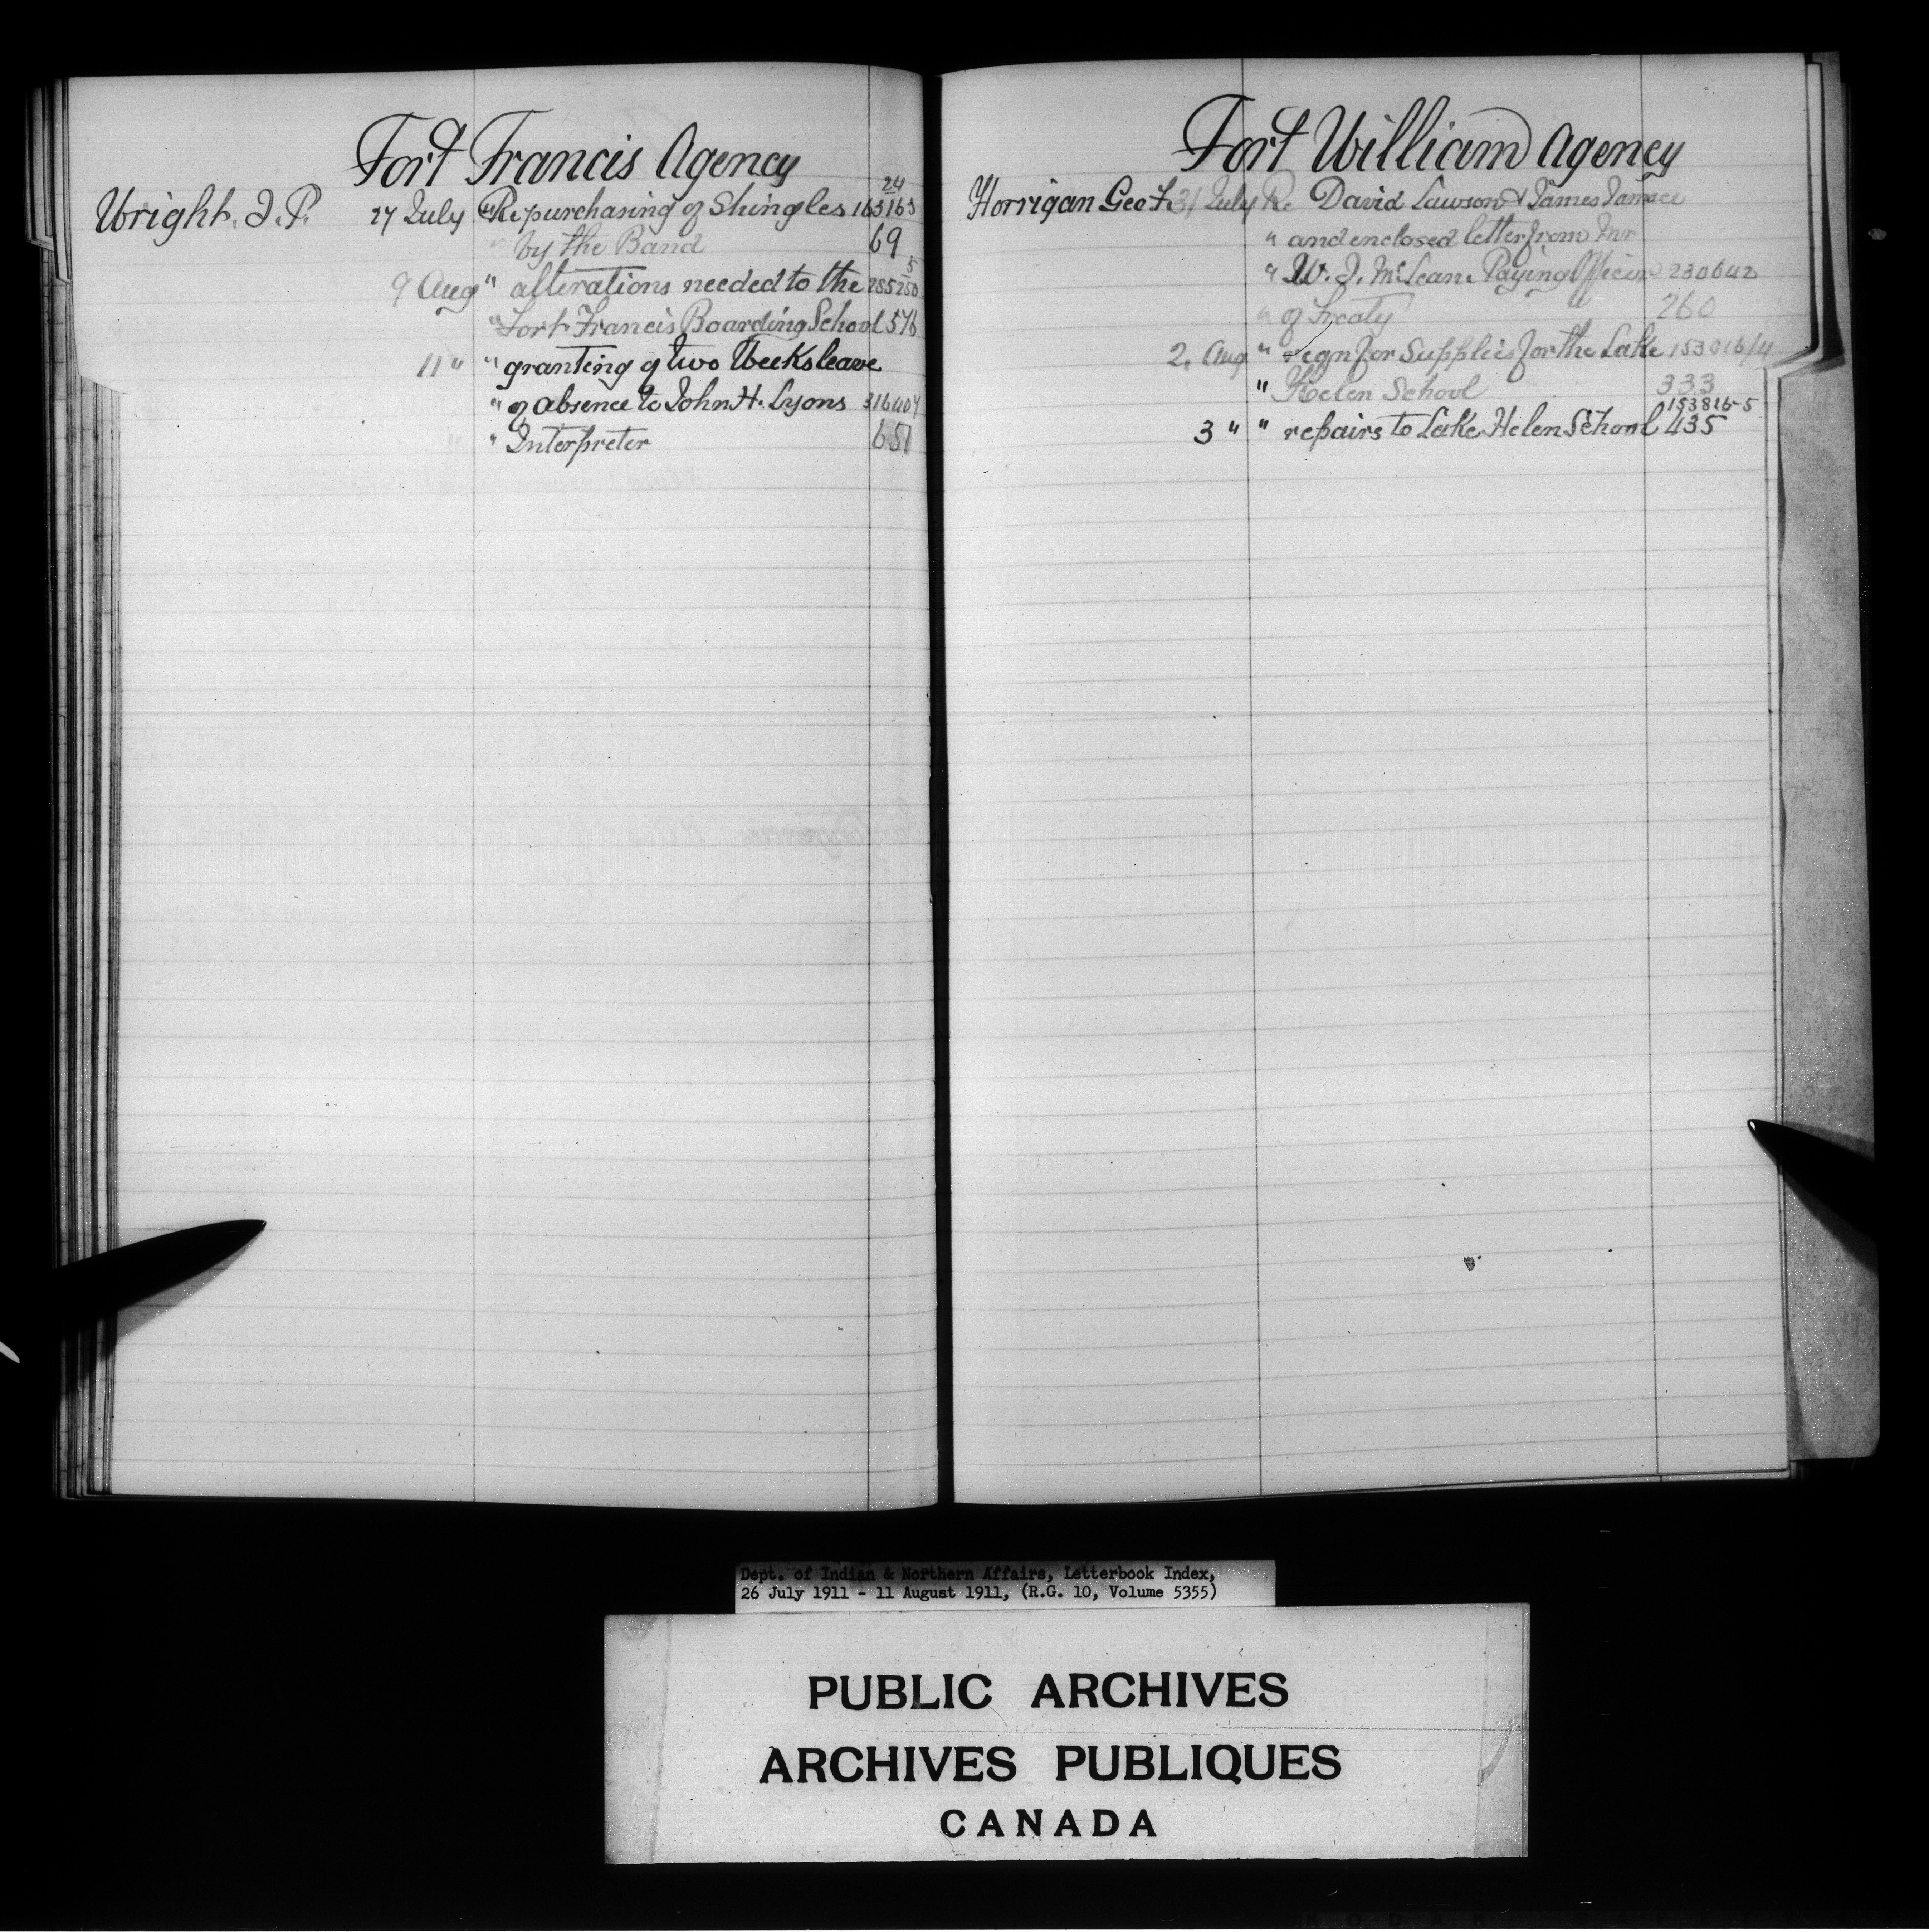 Fort Francis Agency
24
Wright. J. P. 27 July Re purchasing of Shingles 163163
" by the Band 69
5
9 Aug " alterations needed to the 255250
" Fort Francis Boarding School 576
11 " " granting of two Weeks leave
" of absence to John H. Lyons 316404
" Interpreter 651
Fort William Agency
Horrigan Geo F. 31 July Re David Lawson & James
" and enclosed letter from Mr
" W. J. McLean Paying Officer 230642
" of Treaty 260
2. Aug " reqn for Supplies for the Lake
" Helen School 333
153816-5
3 " " repairs to Lake Helen School 435
Dept. of Indian & Northern Affairs, Letterbook Index,
26 July 1911 - 11 August 1911, (R.G. 10, Volume 5355)
PUBLIC ARCHIVES
ARCHIVES PUBLIQUES
CANADA